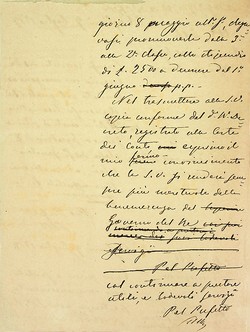 giorno 8 maggio all'
promuoverla dalla 3ª
alla 2ª classe, collo stipendio
di £. 2500 a decorrere dal 1º
giugno p.p.
Nel trasmettere alla S.V.
copia conforme del d.º R. De
creto, registrato alla Corte
dei Conti, esprimo il
mio fermo convincimento
che la S.V. si renderà sem
pre più meritevole della
benemerenza del
Governo del Re
Pel Prefetto
col continuare a prestare
utili, e lodevoli servizi
Pel Prefetto